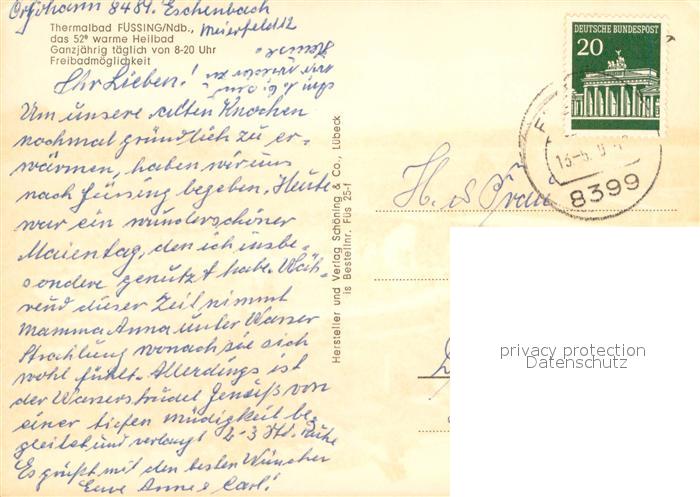 8481. Eschenbach
Meierfeld 12
Thermalbad FÜSSING/Ndb.,
das 52° warme Heilbad
Ganzjährig täglich von 8-20 Uhr
Freibadmöglichkeit
Ihr Lieben!
Um unsere alten Knochen
nochmal gründlich zu er-
wärmen, haben wir uns
nach Füssing begeben. Heute
war ein wunderschöner
Maientag, den ich insbe-
sondere genutzt habe. Wäh-
rend dieser Zeil nimmt
Mamma Anna unter Wasser
Strahlung wonach sie sich
wohl fühlt. Allerdings ist
der Wasserstrudel Genuß von
einer tiefen Müdigkeit be-
gleitet und verlangt 2-3 Std. Ruhe
Es grüßt mit den besten Wünschen
Eure Anne & Carl!
Hersteller und Verlag Schöning & Co., Lübeck
Bestellnr. Füs 25-f
DEUTSCHE BUNDESPOST
20
8399
H. u Frau
privacy protection
Datenschutz